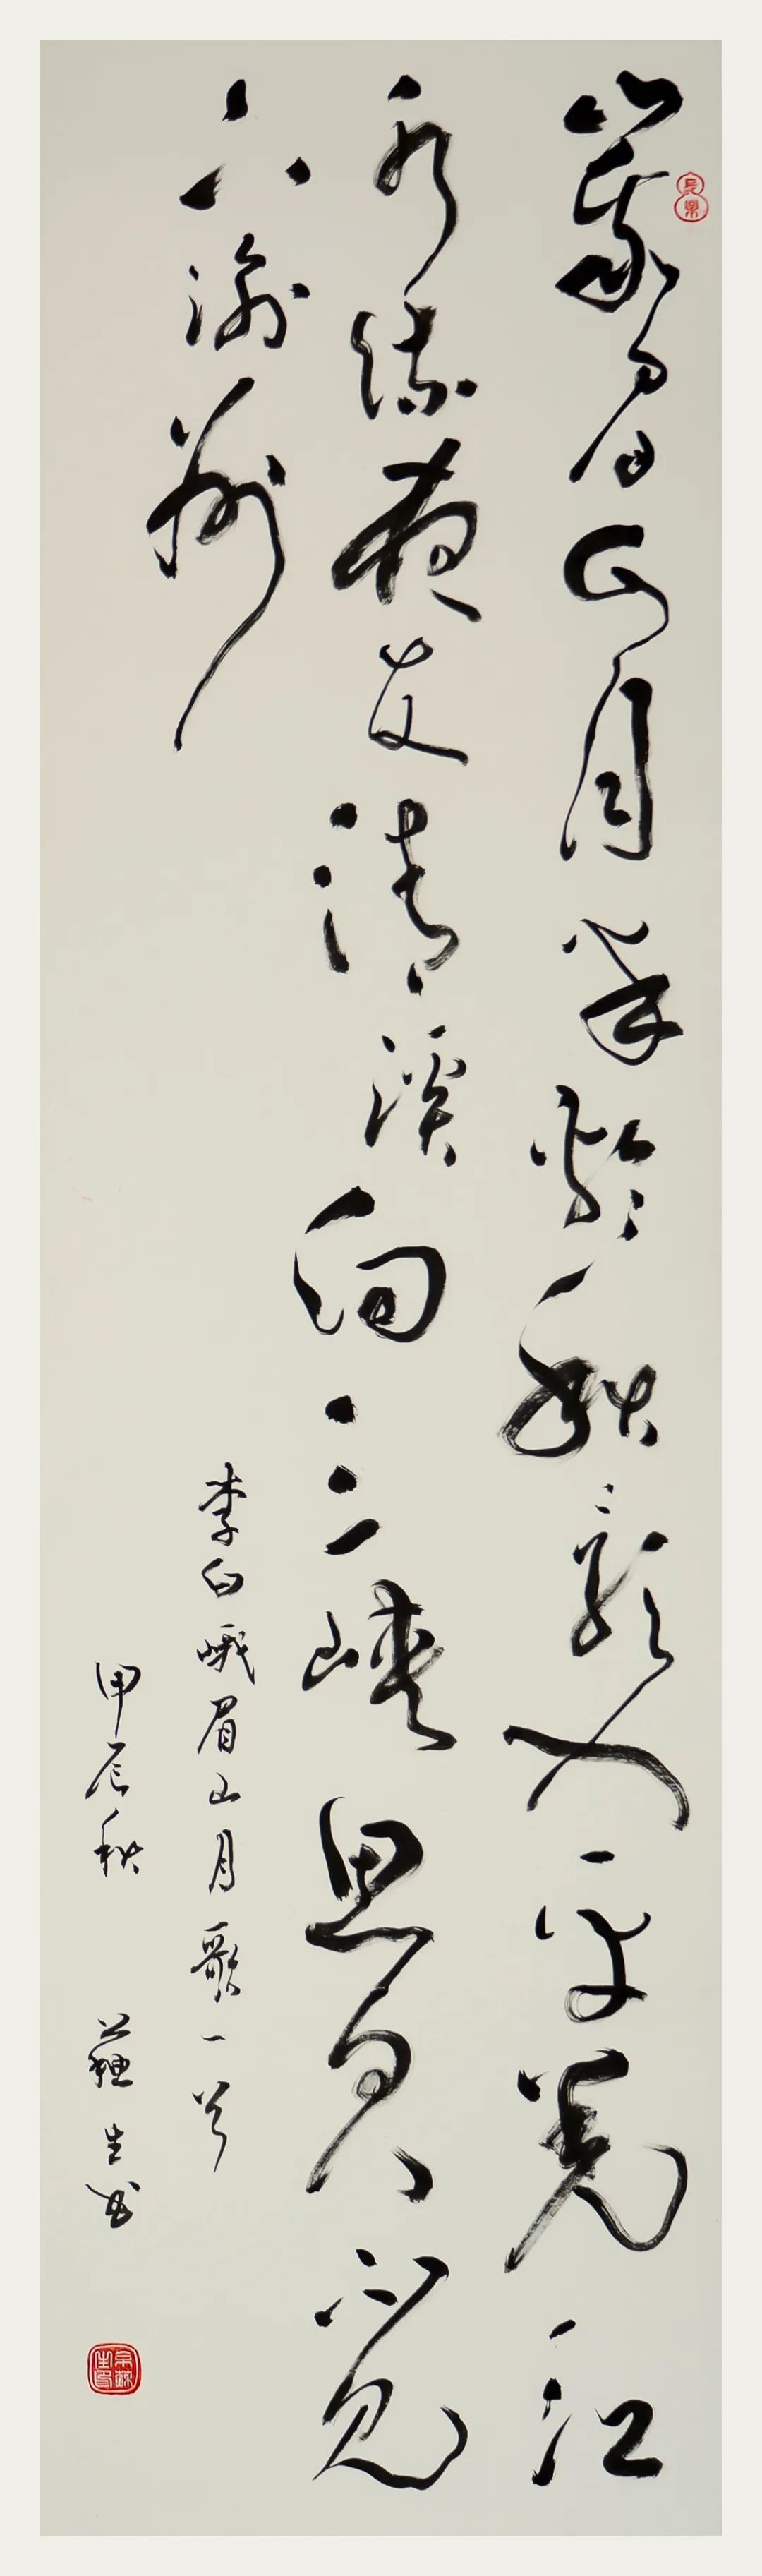 峩眉山月半輪秋影入平羌江
水流夜发清溪向三峽思君不見
下渝州
李白峨眉山月歌一首
甲辰秋 蘇生书
長樂